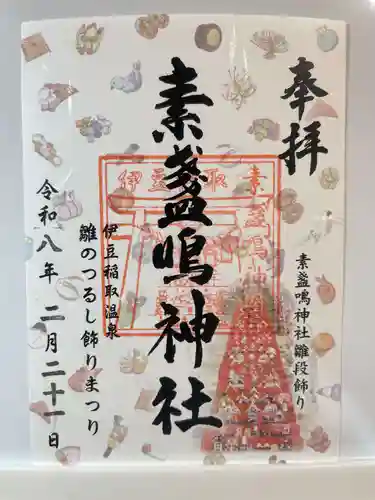 奉拝
素盞鳴神社雛段飾り
素盞鳴神社
伊豆稲取温泉
雛のつるし飾りまつり
令和八年 二月二十一日
伊豆稲取
素盞鳴神社